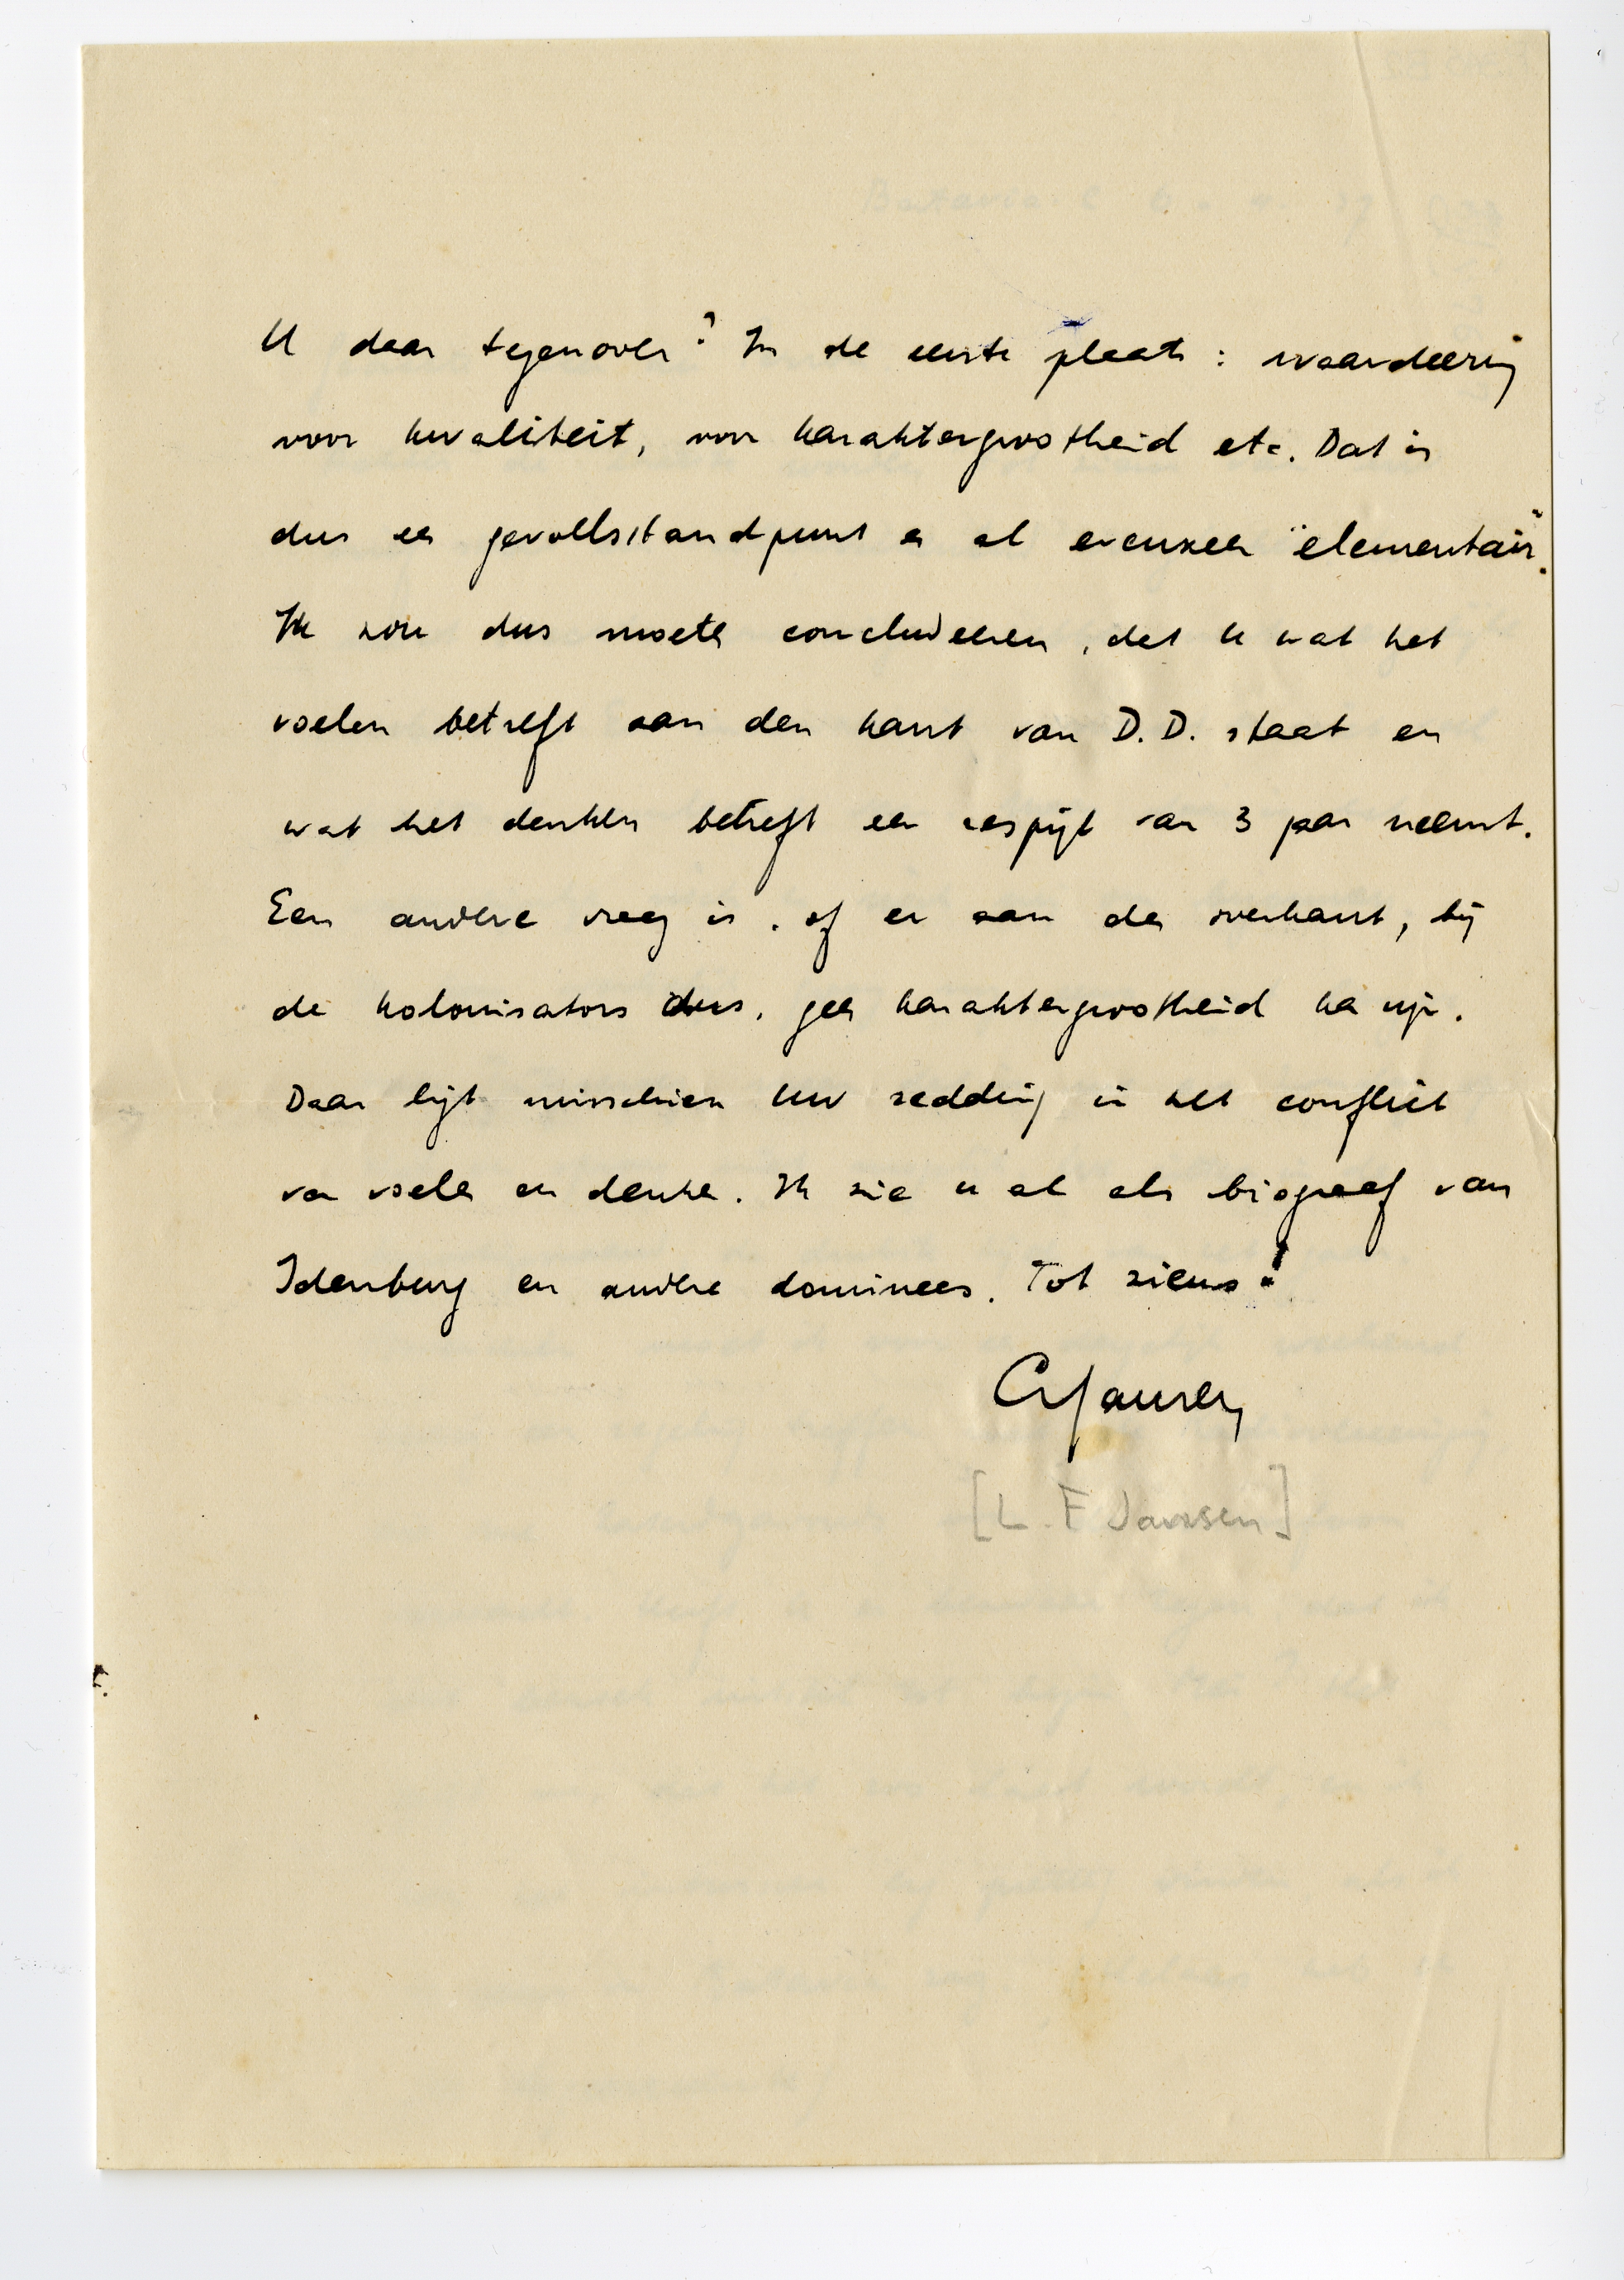 U daar tegenover? In de eerste plaats: waardeering
voor kwaliteit, voor karaktergrootheid etc. Dat is
dus een gevoelsstandpunt en al evenzeer "elementair".
Ik zou dus moeten concludeeren, dat U wat het
voelen betreft aan den kant van D.D. staat en
wat het denken betreft een respijt van 3 jaar neemt.
Een andere vraag is, of er aan de overkant, bij
de kolonisators dus, geen karaktergrootheid kan zijn.
Daar ligt misschien Uw redding in het conflict
van voelen en denken. Ik zie U al als biograaf van
Idenburg en andere dominees. Tot ziens!
Jansen
[L. F Jansen]